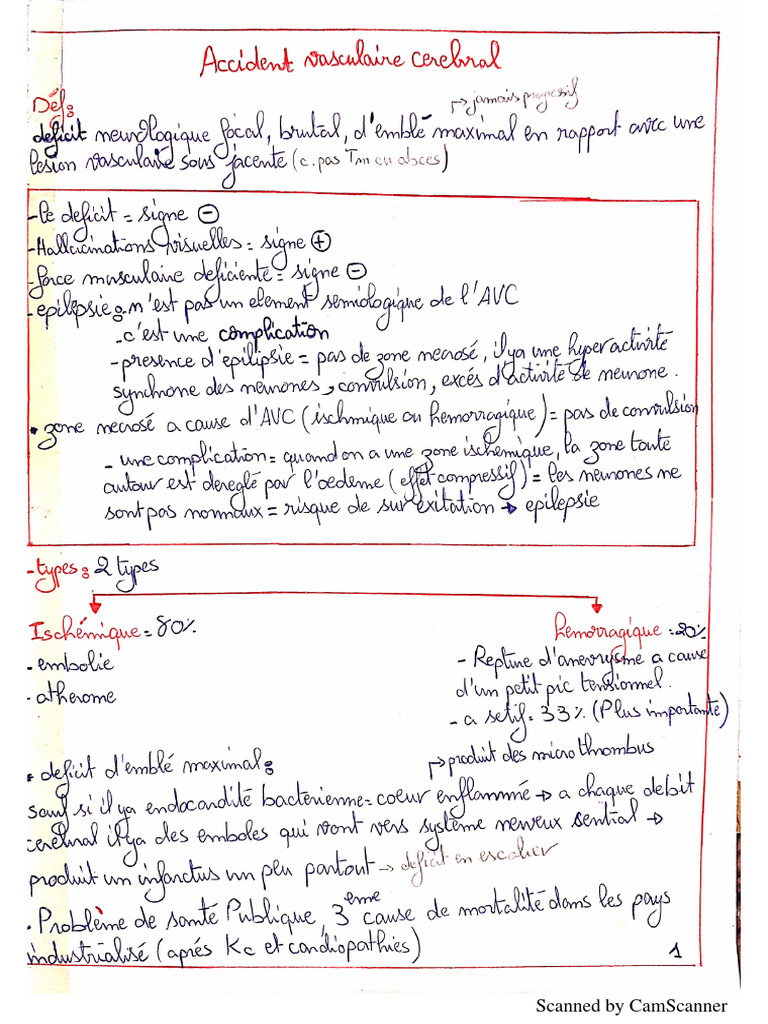 Accident vasculaire cerebral
Déf:
→ jamais progressif
deficit neurologique focal, brutal, d'emblé maximal en rapport avec une
lesion vasculaire sous jacente (c. pas Tm ou abces)
- Le deficit = signe ⊖
- Hallucinations visuelles = signe ⊕
- force musculaire deficiente = signe ⊖
- epilepsie: n'est pas un element semiologique de l'AVC
- c'est une complication
- presence d'epilipsie = pas de zone necrosé, il ya une hyperactivité
synchrone des neurones, convulsion, excés d'activité de neurone.
• zone necrosé a cause d'AVC (ischmique ou hemorragique) = pas de convulsion
- une complication = quand on a une zone ischemique, la zone toute
autour est dereglé par l'oedeme (effet compressif) = les neurones ne
sont pas normaux = risque de sur exitation → epilepsie
- types: 2 types
Ischémique = 80%
hemorragique = 20%
- embolie
- atherome
- Repture d'anevrysme a cause
d'un petit pic tensionnel.
- a setif = 33% (Plus importante)
• deficit d'emblé maximal:
→ produit des micro thrombus
sauf si il ya endocardité bactérienne = coeur enflammé → a chaque debit
cerebral il ya des emboles qui vont vers système nerveux sentral →
produit un infarctus un peu partout → deficit en escalier
• Problème de santé Publique, 3eme cause de mortalité dans les pays
industrialisé (aprés Kc et cardiopathies)
1
Scanned by CamScanner